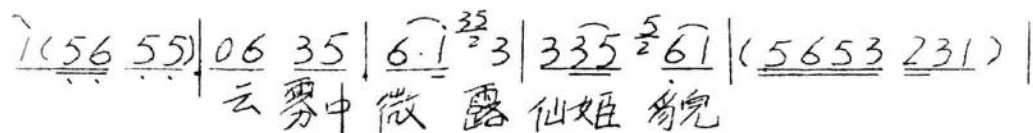 1(56 55) | 06 35 | 6·1 35/2 3 | 335 5/2 61 | (5653 231) |
云雾中微露仙姬貌